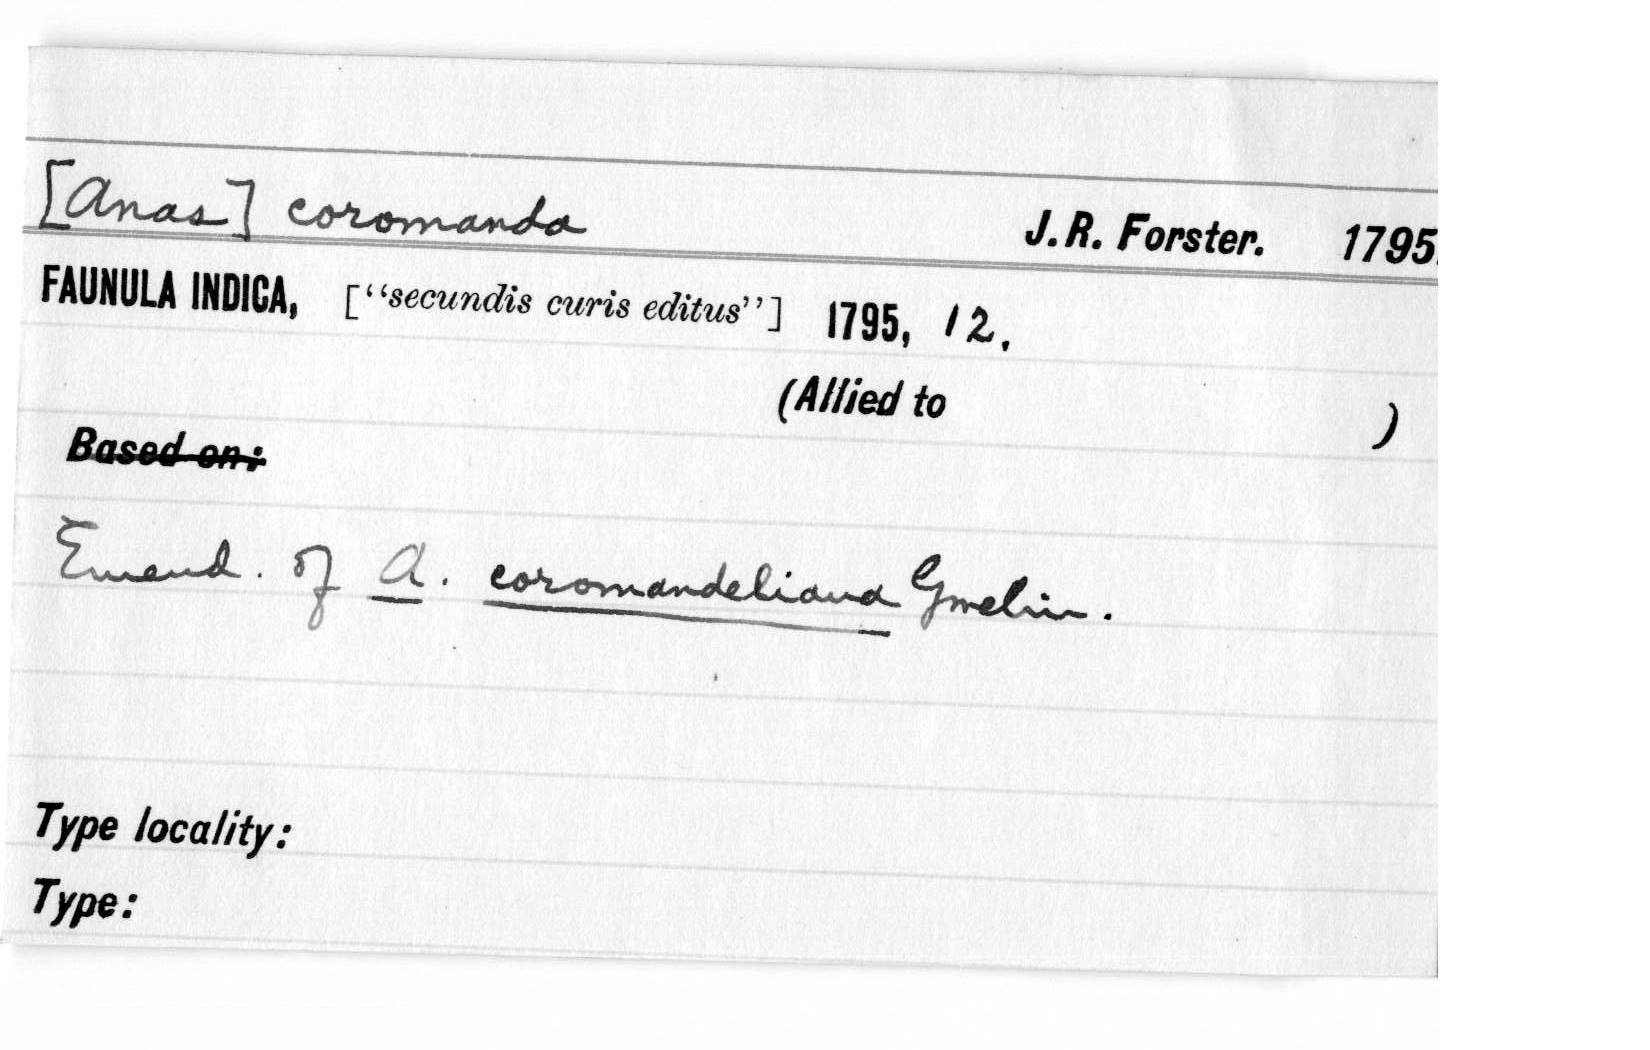 [Anas] coromanda J.R. Forster. 1795.
FAUNULA INDICA, ["secundis curis editus"] 1795, 12.
(Allied to )
Based on:
Emend. of A. coromandeliana Gmelin.
Type locality:
Type: